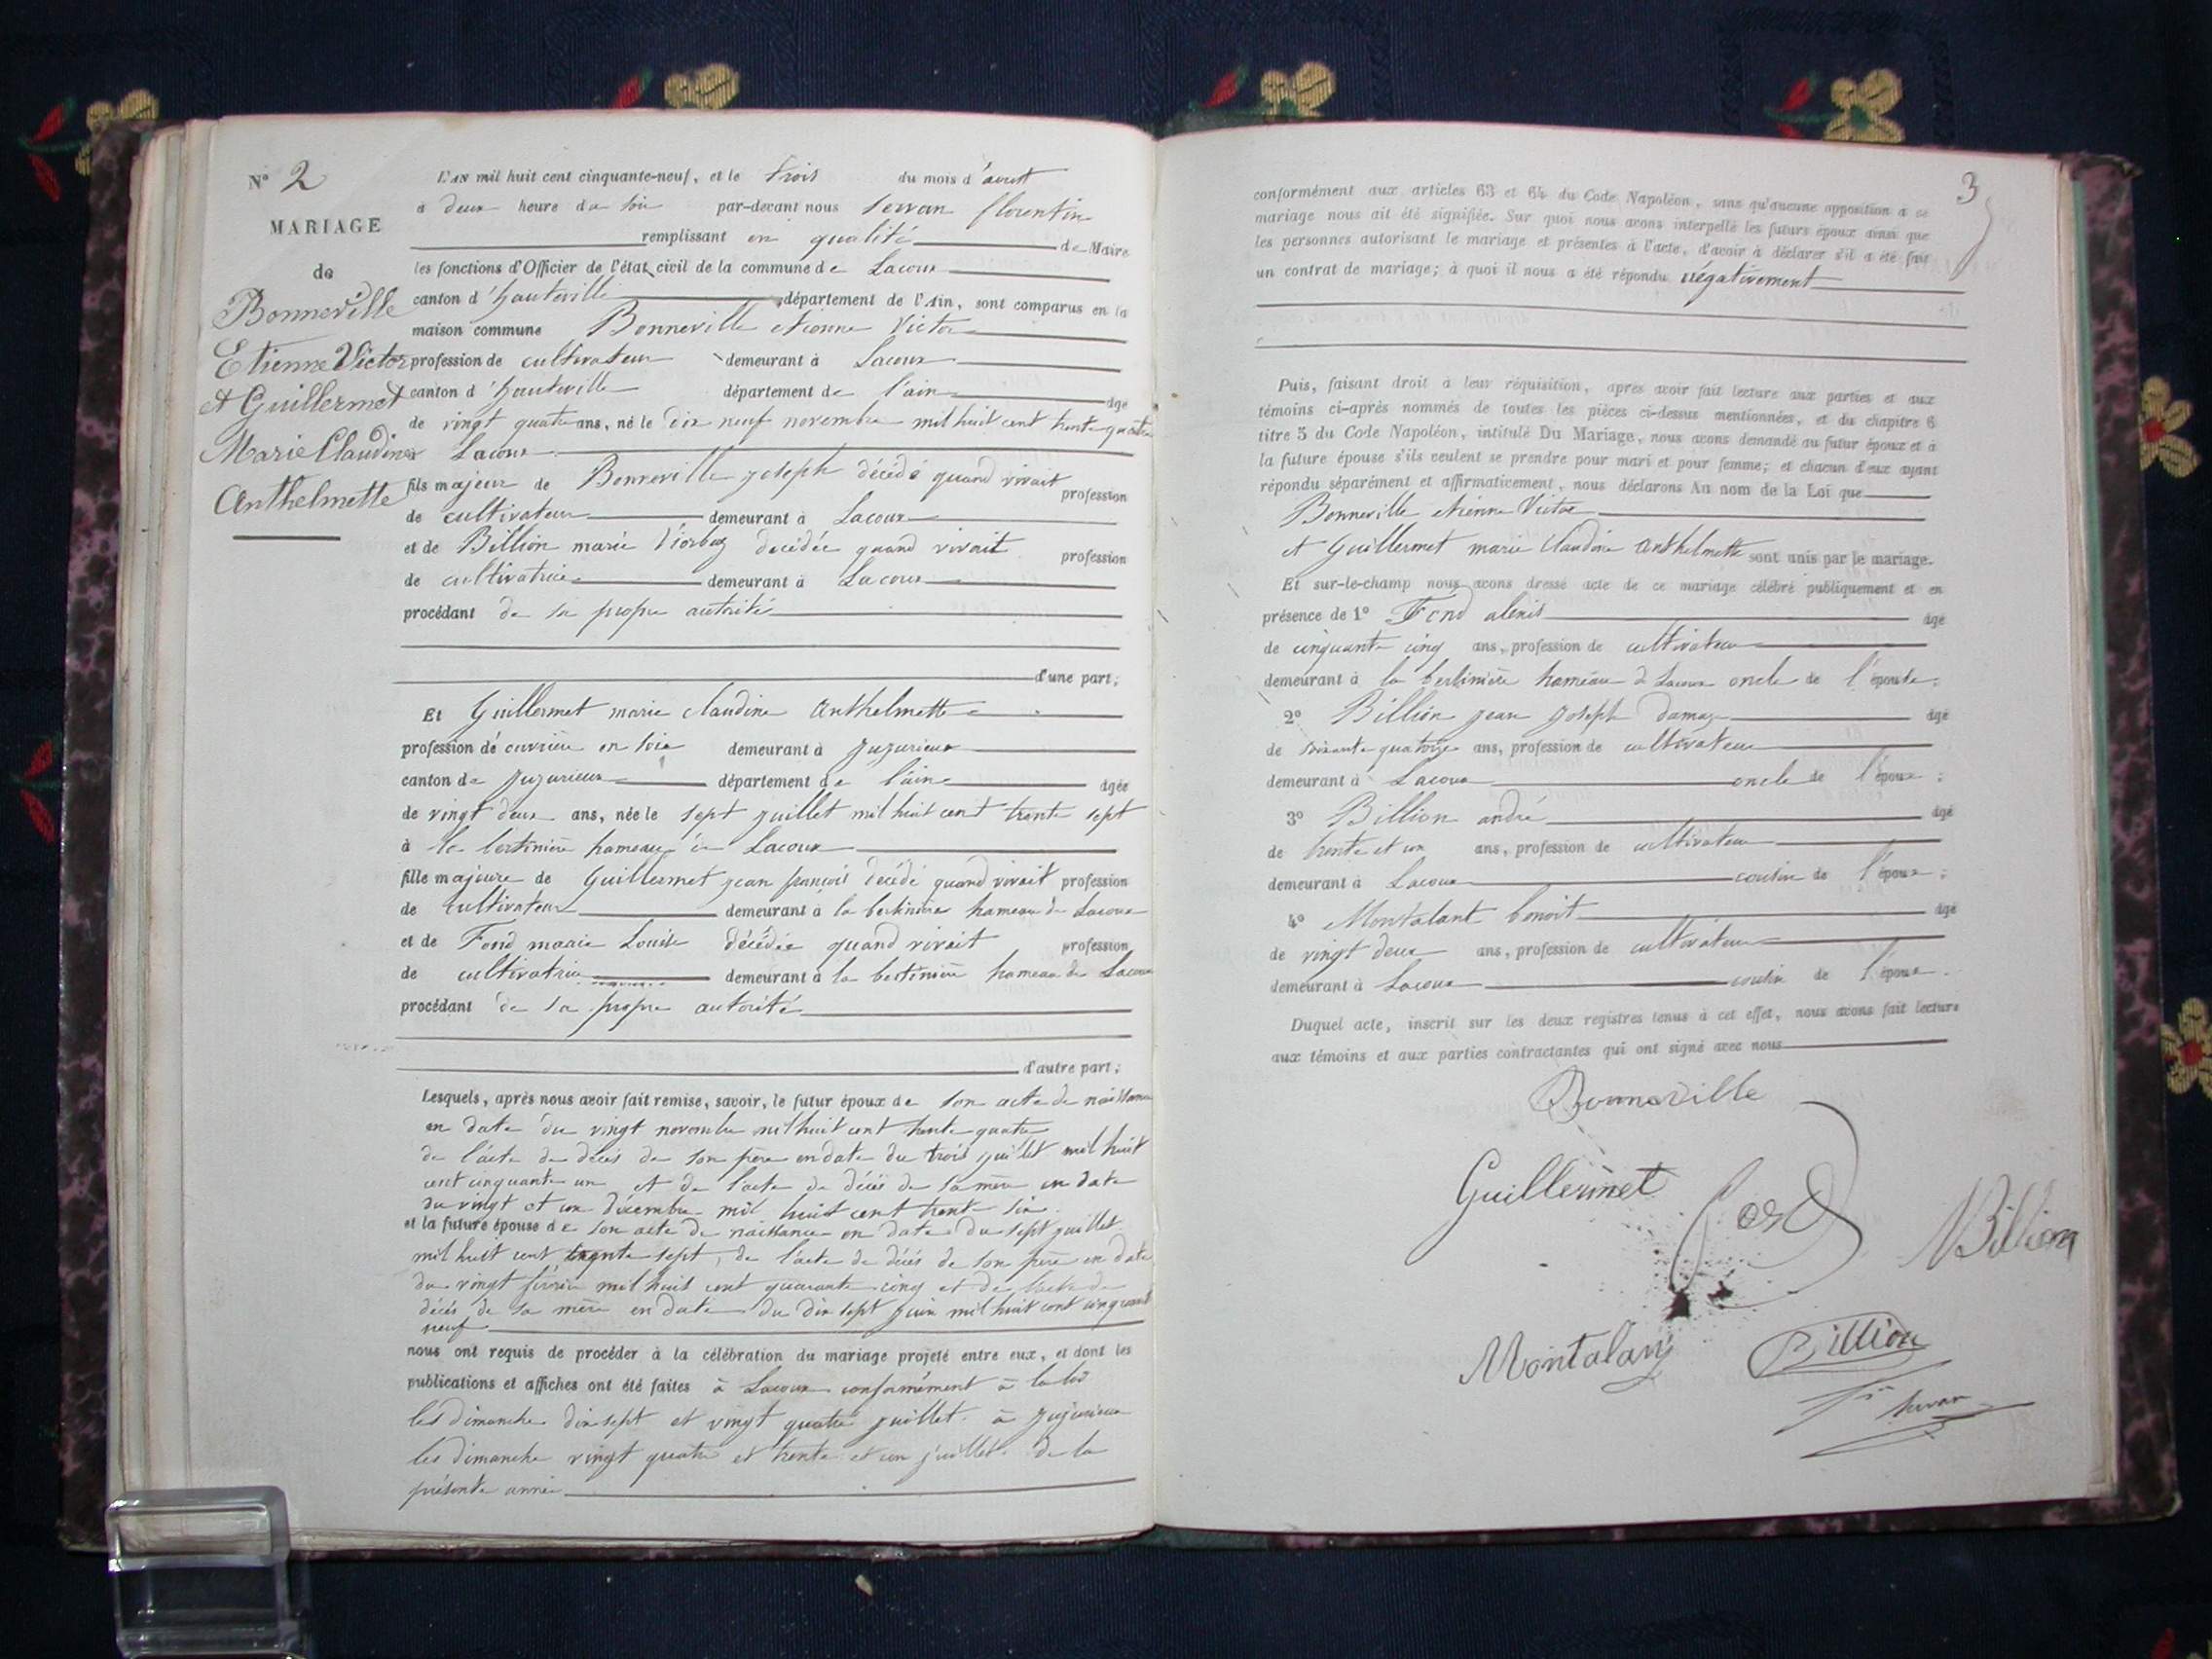 N° 2
MARIAGE
de
Bonneville
Etienne Victor
et Guillermet
Marie Claudine
Anthelmette
L'an mil huit cent cinquante-neuf, et le trois du mois d'août
à deux heure du soir par-devant nous Servan florentin
remplissant en qualité de Maire
les fonctions d'Officier de l'état civil de la commune de Lacoux
canton d'hauteville département de l'Ain, sont comparus en la
maison commune Bonneville etienne Victor
profession de cultivateur demeurant à Lacoux
canton d'hauteville département de l'ain âgé
de vingt quatre ans, né le dix neuf novembre mil huit cent trente quatre
à Lacoux
fils majeur de Bonneville joseph décédé quand vivait profession
de cultivateur demeurant à Lacoux
et de Billion marie décédée quand vivait profession
de cultivatrice demeurant à Lacoux
procédant de sa propre autorité
d'une part;
Et Guillermet marie claudine Anthelmette
profession de ouvrière en soie demeurant à jujurieux
canton de jujurieux département de l'ain âgée
de vingt deux ans, née le sept juillet mil huit cent trente sept
à la bertinière hameau de Lacoux
fille majeure de Guillermet jean françois décédé quand vivait profession
de cultivateur demeurant à la bertinière hameau de Lacoux
et de Fond marie Louise décédée quand vivait profession
de cultivatrice demeurant à la bertinière hameau de Lacoux
procédant de sa propre autorité
d'autre part;
Lesquels, après nous avoir fait remise, savoir, le futur époux de son acte de naissance
en date du vingt novembre mil huit cent trente quatre
de l'acte de décès de son père en date du trois juillet mil huit
cent cinquante un et de l'acte de décès de sa mère en date
du vingt et un décembre mil huit cent trente six
et la future épouse de son acte de naissance en date du sept juillet
mil huit cent trente sept, de l'acte de décès de son père en date
du vingt février mil huit cent quarante cinq et de l'acte de
décès de sa mère en date du dix sept juin mil huit cent cinquante
neuf
nous ont requis de procéder à la célébration du mariage projeté entre eux, et dont les
publications et affiches ont été faites à Lacoux conformément à la loi
les dimanche dix sept et vingt quatre juillet à jujurieux
les dimanche vingt quatre et trente et un juillet de la
présente année
3
conformément aux articles 63 et 64 du Code Napoléon, sans qu'aucune opposition à ce
mariage nous ait été signifiée. Sur quoi nous avons interpellé les futurs époux ainsi que
les personnes autorisant le mariage et présentes à l'acte, d'avoir à déclarer s'il a été fait
un contrat de mariage; à quoi il nous a été répondu négativement
Puis, faisant droit à leur réquisition, après avoir fait lecture aux parties et aux
témoins ci-après nommés de toutes les pièces ci-dessus mentionnées, et du chapitre 6
titre 5 du Code Napoléon, intitulé Du Mariage, nous avons demandé au futur époux et à
la future épouse s'ils veulent se prendre pour mari et pour femme; et chacun d'eux ayant
répondu séparément et affirmativement, nous déclarons Au nom de la Loi que
Bonneville etienne Victor
et Guillermet marie claudine Anthelmette sont unis par le mariage.
Et sur-le-champ nous avons dressé acte de ce mariage célébré publiquement et en
présence de 1° Fond alexis âgé
de cinquante cinq ans, profession de cultivateur
demeurant à la bertinière hameau de Lacoux oncle de l'épouse;
2° Billion jean joseph âgé
de soixante quatorze ans, profession de cultivateur
demeurant à Lacoux oncle de l'époux;
3° Billion andré âgé
de trente et un ans, profession de cultivateur
demeurant à Lacoux cousin de l'époux;
4° Montalant benoit âgé
de vingt deux ans, profession de cultivateur
demeurant à Lacoux cousin de l'époux.
Duquel acte, inscrit sur les deux registres tenus à cet effet, nous avons fait lecture
aux témoins et aux parties contractantes qui ont signé avec nous
Bonneville
Guillermet
Billion
Montalant
Billion
Servan